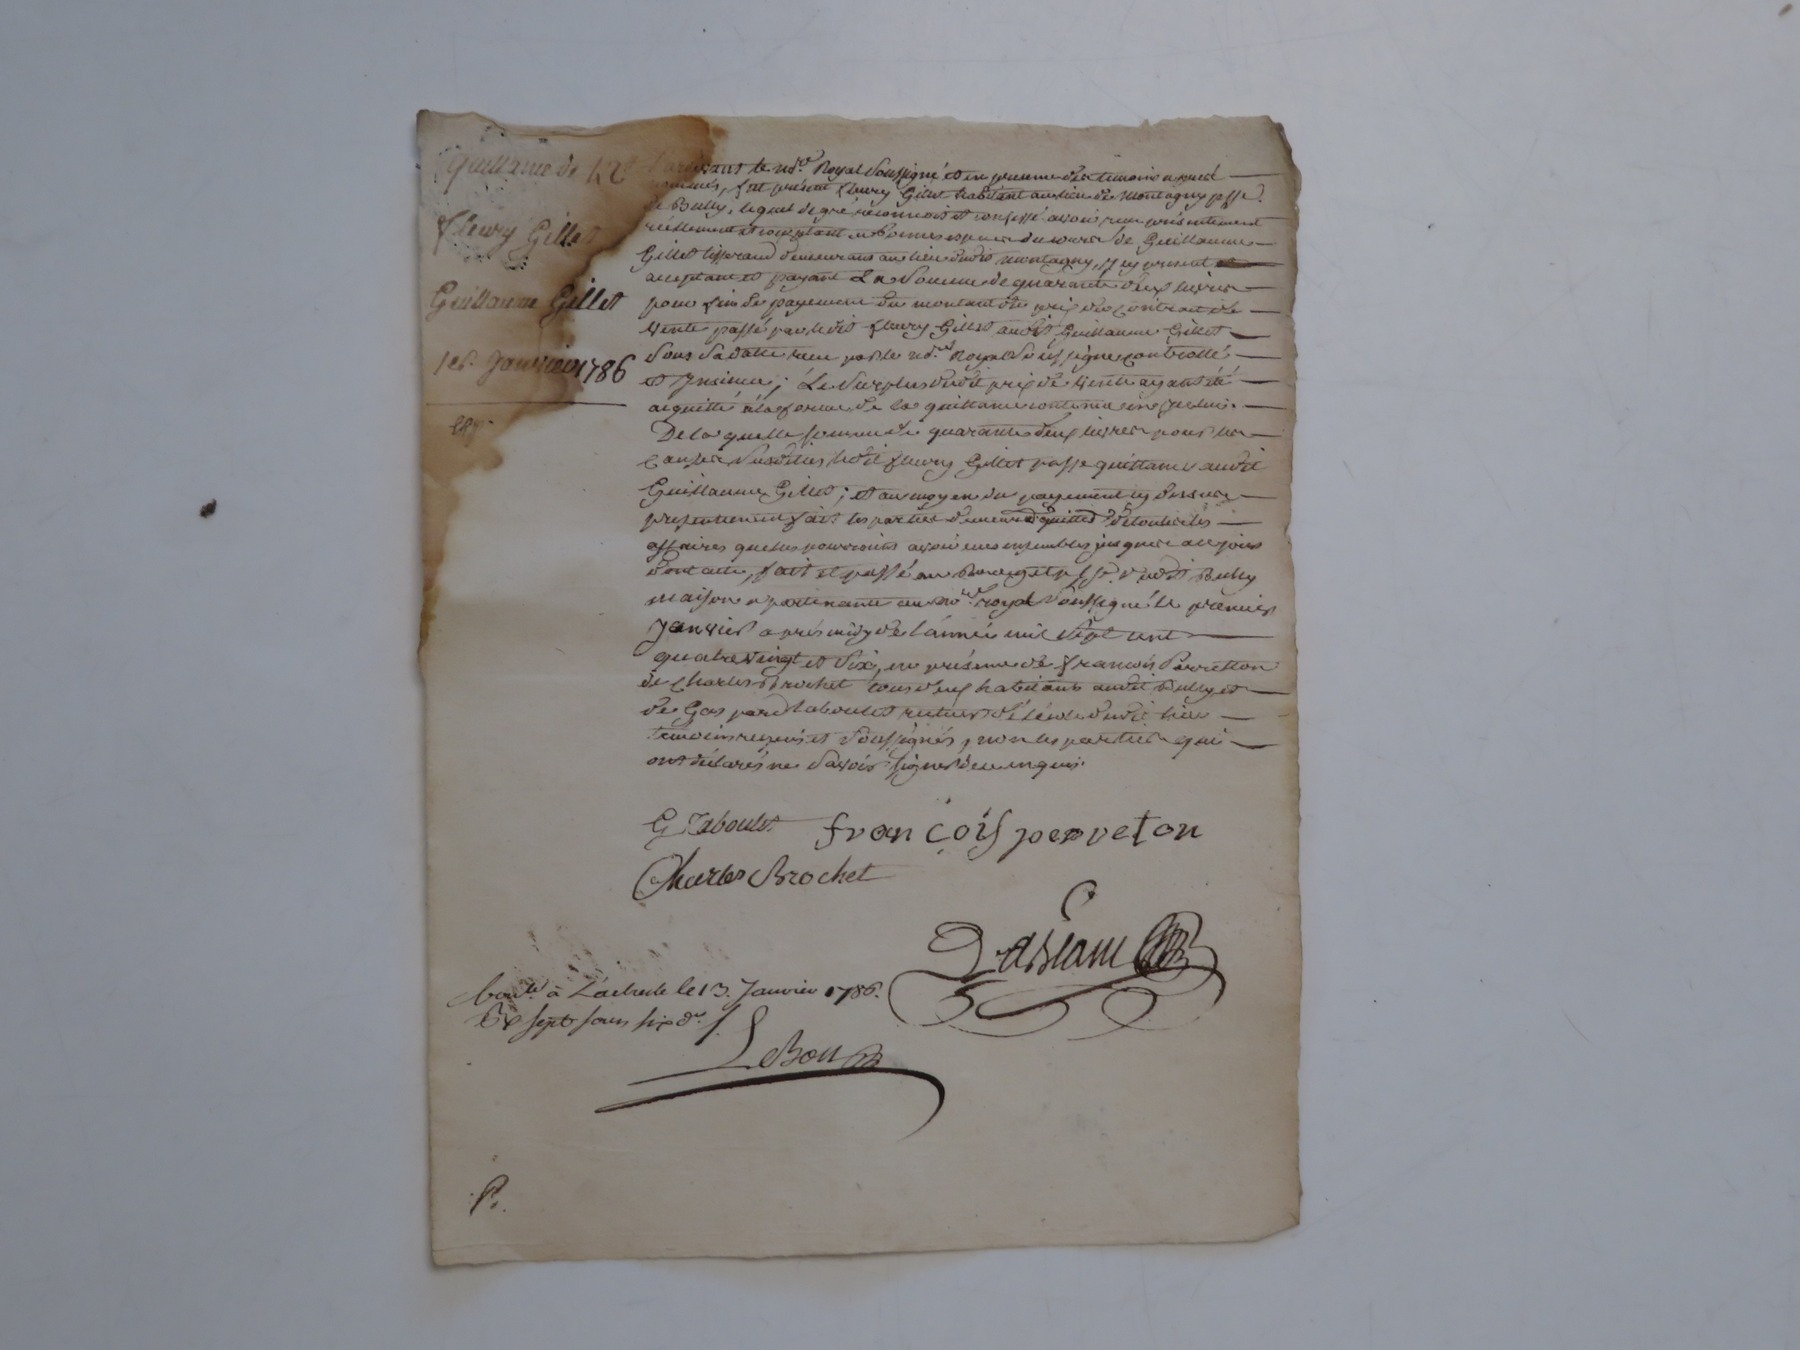 Quittance de 42lt
fleury Gillet
Guillaume Gillet
1er. Janvier 1786
Pardevant le nore. Royal soussigné et en presence des temoins apres
nommés, fut présent fleury Gillet habitant au lieu de Montagny psse.
de Bully, lequel de gré reconnoit et confesse avoir reçu présentement
réellement et comptant en bonnes especes du cours de Guillaume
Gillet tisserand demeurant au lieu dudit montagny, icy present
acceptant et payant La Somme de quarante deux livres
pour fin de payement du montant du prix du Contrat de
Vente passé par ledit fleury Gillet audit Guillaume Gillet
Sous Sa datte reçu par le nore. Royal Soussigné controllé
et Insinué; Le Surplus dudit prix de Vente ayant été
acquitté à la forme de la quittance contenue en icelui.
De laquelle somme de quarante deux livres pour les
Causes Susdites ledit fleury Gillet passe quittance audit
Guillaume Gillet; et au moyen du payement cy dessus
presentement fait les parties demeurent quittes de toutes les
affaires quelles pourroient avoir eues ensembles jusques a ce jour
dont acte, fait et passé au Bourg et psse. dudit Bully
maison apartenante au nore. royal Soussigné le premier
Janvier après midy de l'année mil Sept cent
quatre vingt et Six, en présence de francois Perretton
de Charles Brochet tous deux habitants audit Bully et
de Gaspard Taboulet recteur d'école dudit lieu
temoins requis et Soussignés, non les parties qui
ont déclarés ne Savoir signer de ce enquis.
G Taboulet françois perreton
Charles Brochet
contlé. à L'arbresle le 13. Janvier 1786.
Rç sept sous six drs.
LeBon
P.